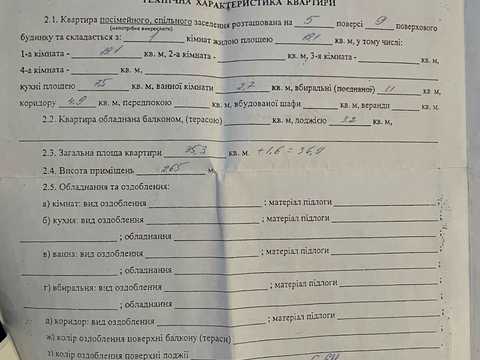 ТЕХНІЧНА ХАРАКТЕРИСТИКА КВАРТИРИ
2.1. Квартира посімейного, спільного заселення розташована на 5 поверсі 9 поверхового
(непотрібне викреслити)
будинку та складається з: 1 кімнат жилою площею 18,1 кв. м, у тому числі:
1-а кімната - 18,1 кв. м, 2-а кімната - кв. м, 3-я кімната - кв. м,
4-а кімната - кв. м,
кухні площею 7,5 кв. м, ванної кімнати 2,7 кв. м, вбиральні (поєднаної) 1,1 кв. м,
коридору 4,9 кв. м, передпокою кв. м, вбудованої шафи кв. м, веранди кв. м.
2.2. Квартира обладнана балконом, (терасою) кв. м, лоджією 3.2 кв. м,
2.3. Загальна площа квартири 35,3 кв. м. +1,6 = 36,9
2.4. Висота приміщень 2,65 м.
2.5. Обладнання та оздоблення:
а) кімнат: вид оздоблення ; матеріал підлоги
б) кухня: вид оздоблення ; матеріал підлоги
; обладнання
в) ванна: вид оздоблення ; матеріал підлоги
; обладнання
г) вбиральня: вид оздоблення ; матеріал підлоги
; обладнання
д) коридор: вид оздоблення ; матеріал підлоги
ж) колір оздоблення поверхні балкону (тераси)
з) колір оздоблення поверхні лоджії